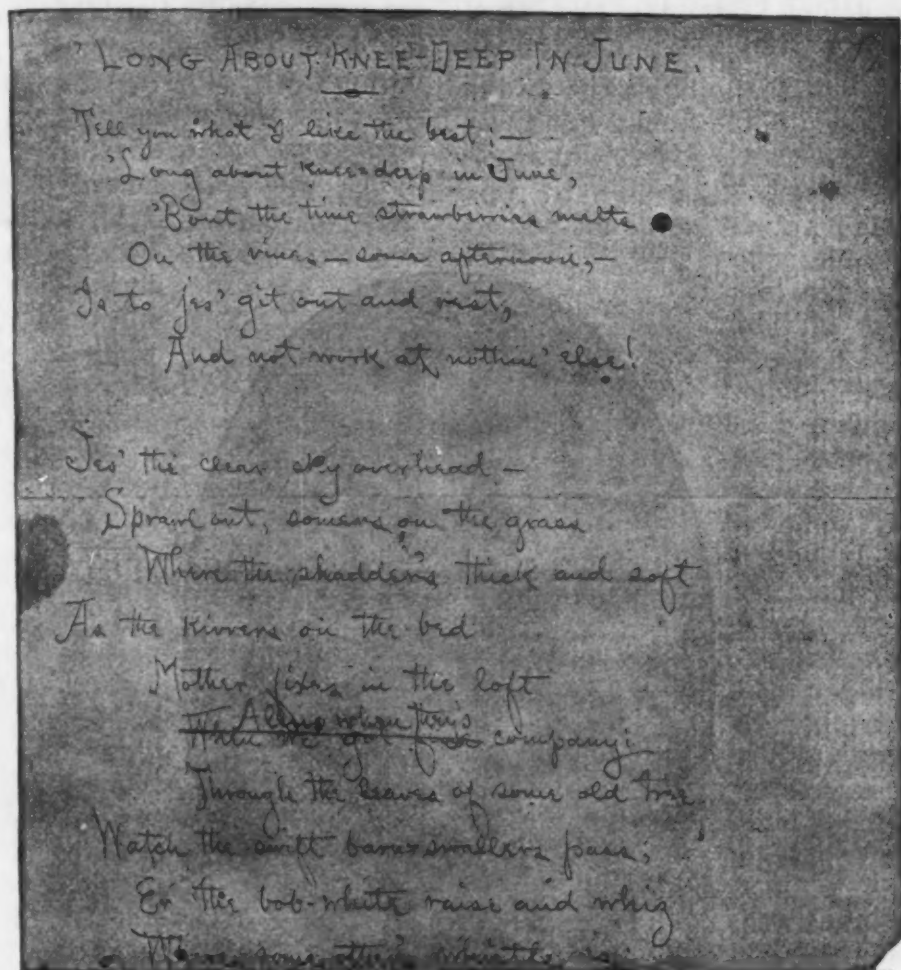 'LONG ABOUT KNEE-DEEP IN JUNE.
Tell you what I like the best;—
'Long about knee-deep in June,
'Bout the time strawberries melts
On the vines—some afternoon,—
Is to jes' git out and rest,
And not work at nothin' else!
Jes' the clear sky overhead—
Sprawl out, somers on the grass
Where the shadder's thick and soft
As the kivvers on the bed
Mother fixes in the loft
Allus when they's
When we got company;
Through the leaves of some old tree
Watch the swift barn-swallers pass;
Er the bob-white raise and whiz
Where some other's whistle is.